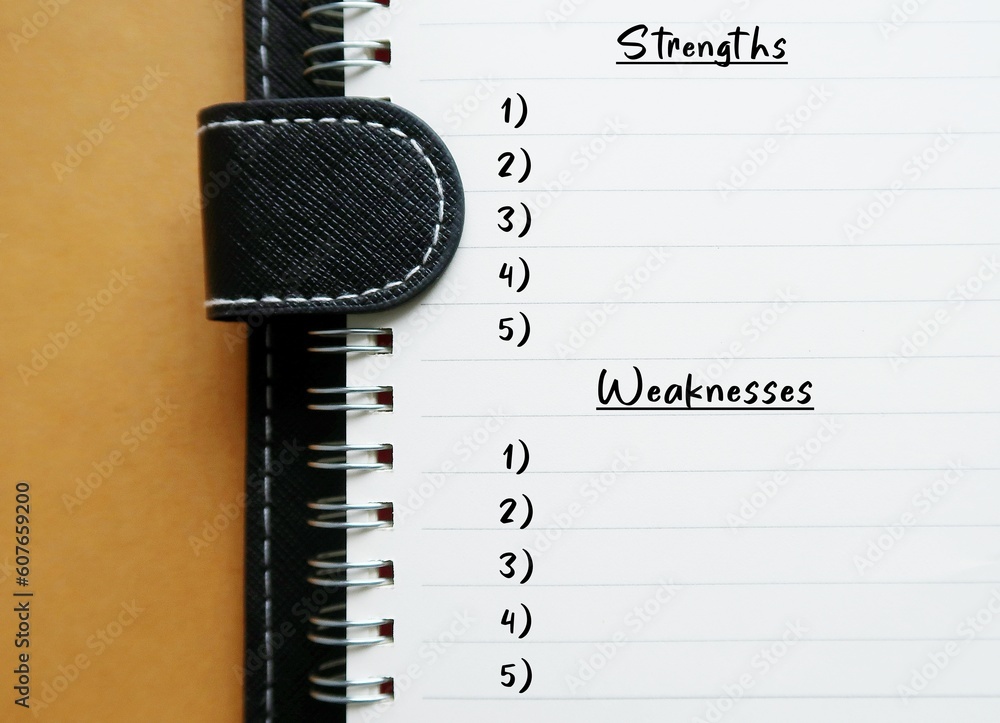 Strengths
1)
2)
3)
4)
5)
Weaknesses
1)
2)
3)
4)
5)
Adobe Stock | #607659200
Adobe Stock